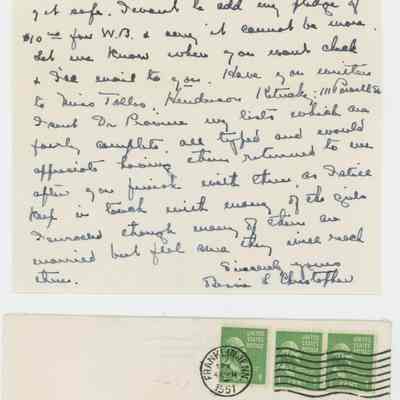 get safe. I want to add my pledge of
$10.00 for W.B. & sorry it cannot be more.
Let me know when you want check
& I'll mail to you. Have you written
to Miss Henderson Kentucky 111 Powell St
I sent Dr my lists which are
fairly complete. all typed and would
appreciate having them returned to me
after you finish with them, as I still
keep in touch with many of the girls
I though many of them are
married but feel sure they will reach
them.
Sincerely yours
S. Christopher
FRANKLIN, TENN.
1951